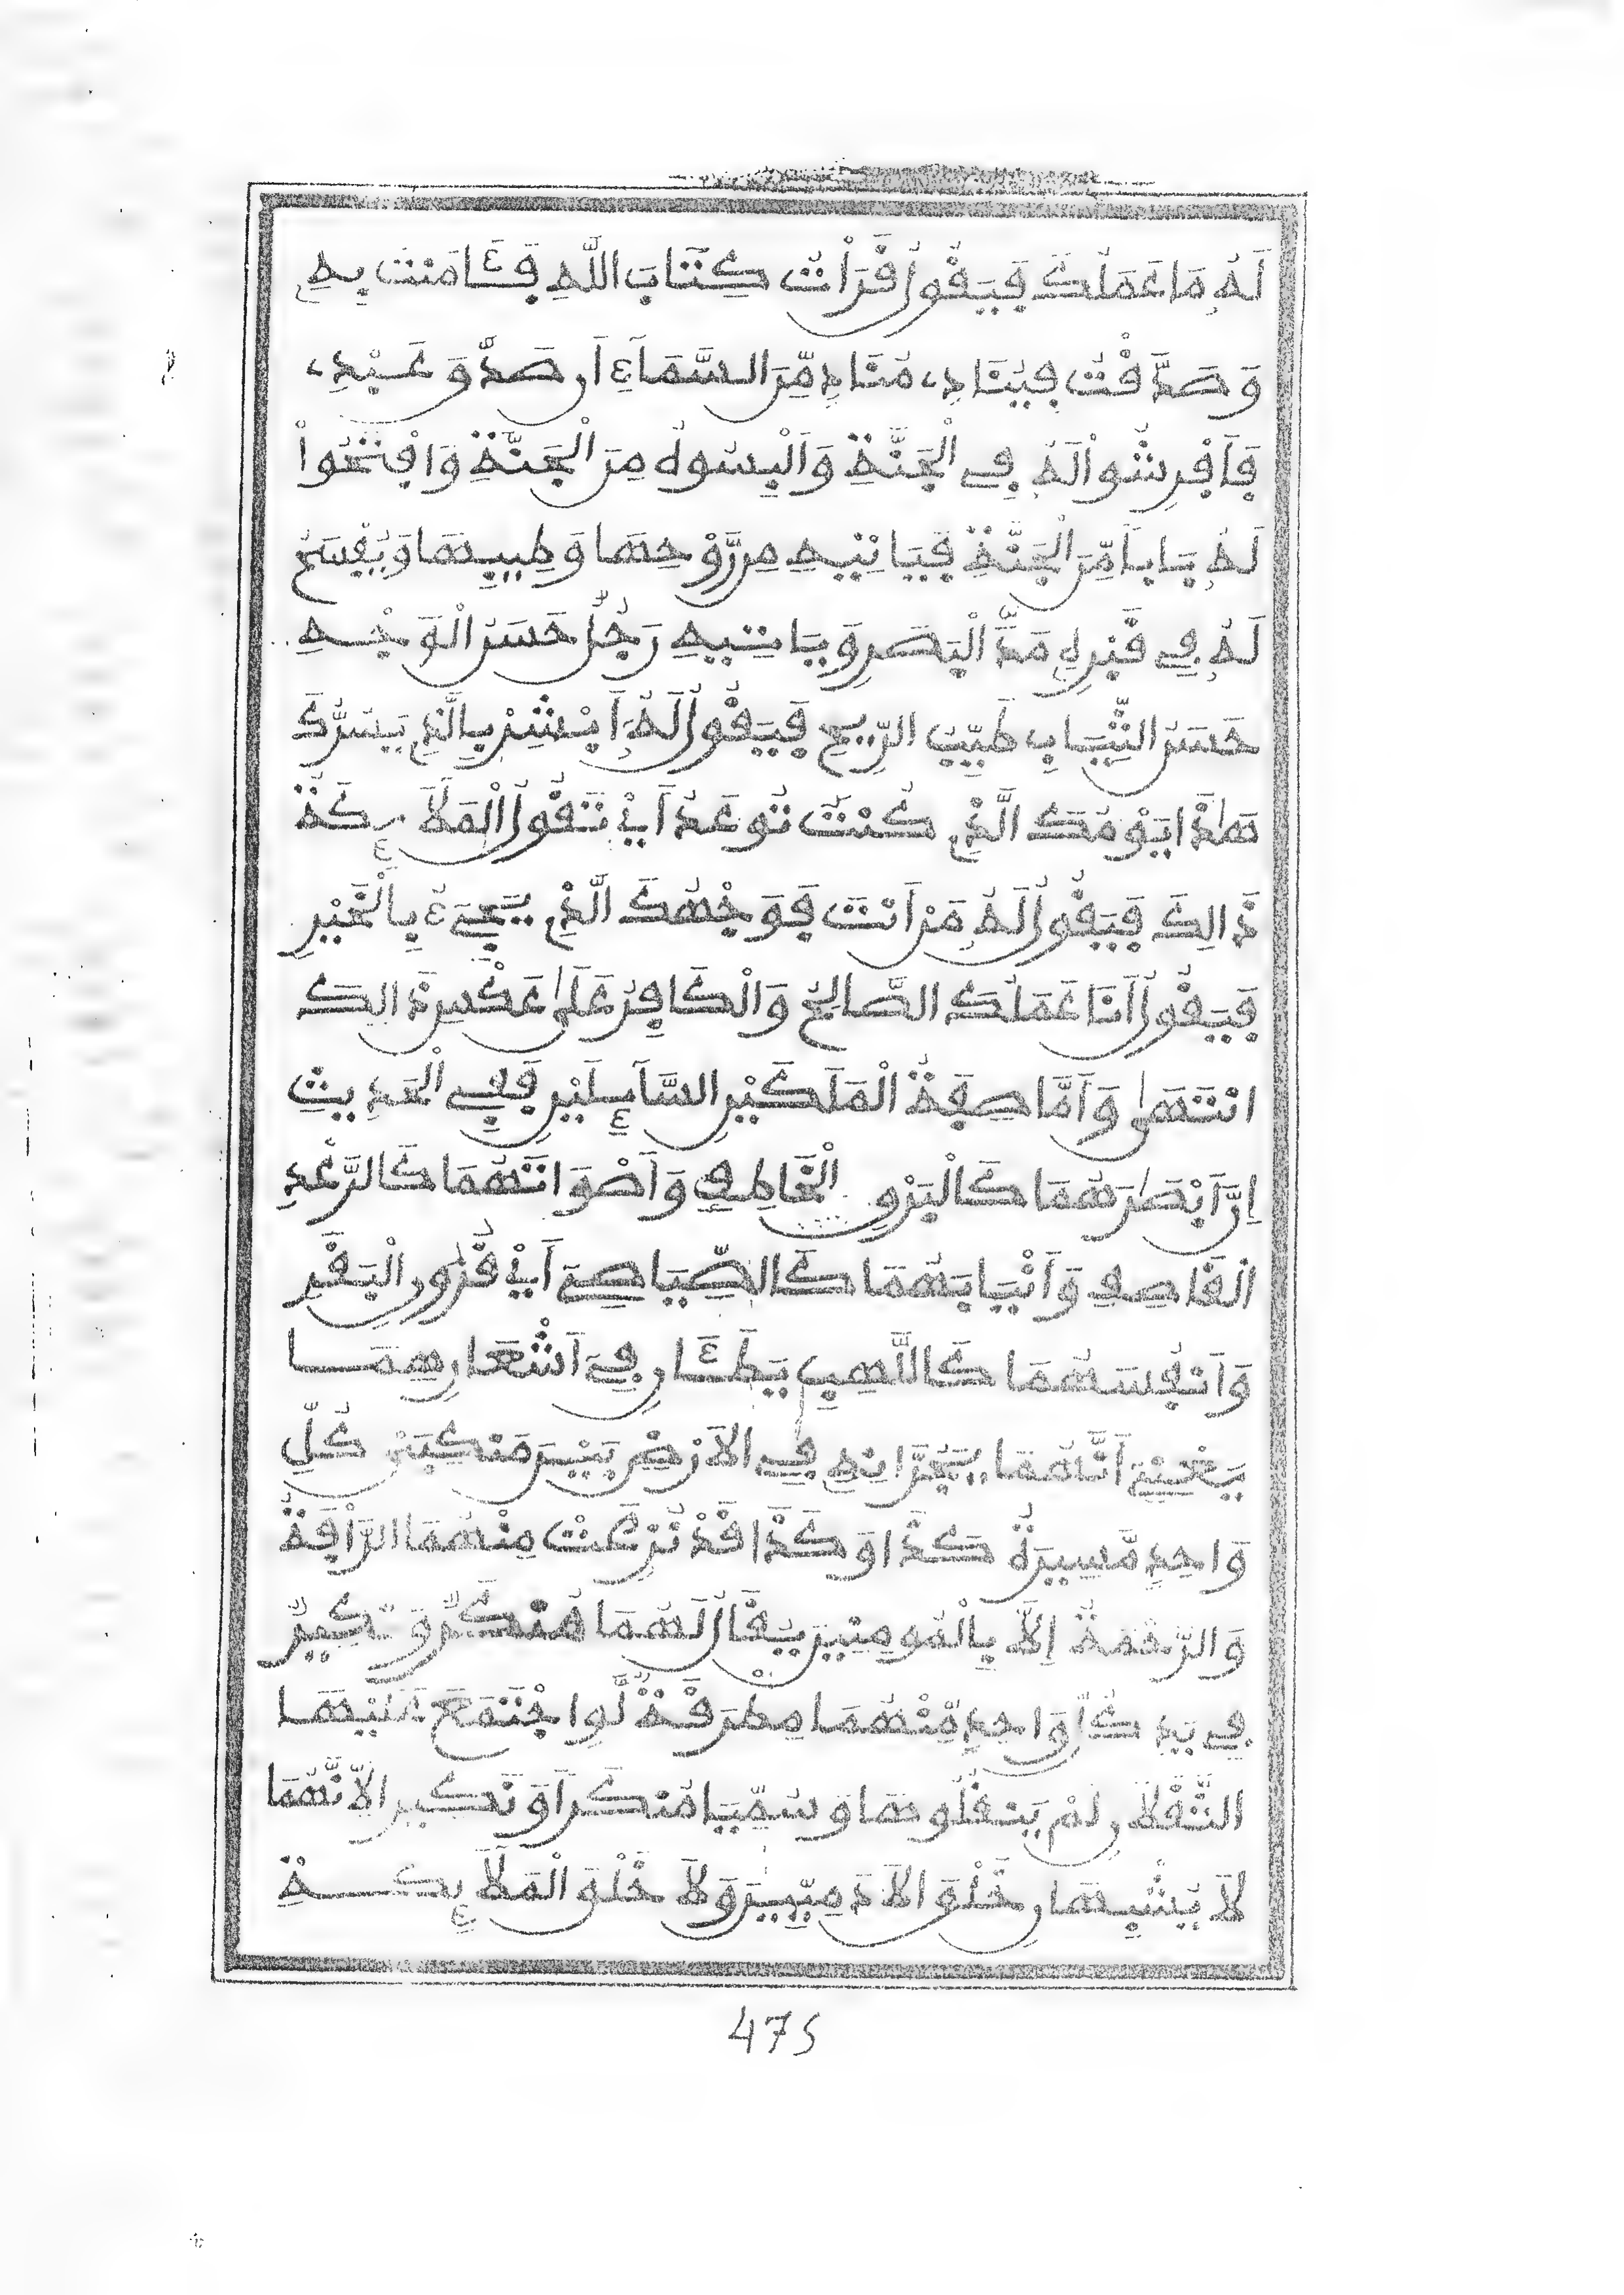 لَهُ مَا عَمَلُكَ فَيَقُولُ قَرَأْتُ كِتَابَ اللَّهِ فَـَٔامَنتُ بِهِ
وَصَدَّقْتُ فَيُنَادِے مُنَادٍ مِّنَ السَّمَآءِ أَن صَدَقَ عَبْدِے
فَأَفْرِشُواْ لَهُ فِي الْجَنَّةِ وَأَلْبِسُوهُ مِنَ الْجَنَّةِ وَافْتَحُواْ
لَهُ بَاباً مِّنَ الْجَنَّةِ فَيَاتِيهِ مِن رَّوْحِهَا وَطِيبِهَا وَيُفْسَحُ
لَهُ فِي قَبْرِهِ مَدَّ الْبَصَرِ وَيَاتِيهِ رَجُلٌ حَسَنُ الْوَجْهِ
حَسَنُ الثِّيَابِ طَيِّبُ الرِّيحِ فَيَقُولُ لَهُ أَبْشِرْ بِالَّذِي يَسُرُّكَ
هَٰذَا يَوْمُكَ الَّذِي كُنتَ تُوعَدُ أَيْ تَقُولُ الْمَلَآئِكَةُ
ذَالِكَ فَيَقُولُ لَهُ مَنْ أَنتَ فَوَجْهُكَ الَّذِي يَجِيءُ بِالْخَيْرِ
فَيَقُولُ أَنَا عَمَلُكَ الصَّالِحُ وَالْكَافِرُ عَلَىٰ عَكْسِ ذَالِكَ
انْتَهَىٰ وَأَمَّا صِفَةُ الْمَلَكَيْنِ السَّآئِلَيْنِ فَفِي الْحَدِيثِ
إِنَّ أَبْصَٰرَهُمَا كَالْبَرْقِ الْخَاطِفِ وَأَصْوَاتَهُمَا كَالرَّعْدِ
الْقَاصِفِ وَأَنْيَابَهُمَا كَالصِّيَاصِي أَيْ قُرُونِ الْبَقَرِ
وَأَنفُسَهُمَا كَاللَّهِيبِ يَطَـَٔانِ فِي أَشْعَارِهِمَا
يَعْنِي أَنَّهُمَا يَجُرَّانِهِ فِي الْأَرْضِ بَيْنَ مَنكِبَيْ كُلِّ
وَاحِدٍ مَّسِيرَةُ كَذَا وَكَذَا قَدْ نُزِعَتْ مِنْهُمَا الرَّأْفَةُ
وَالرَّحْمَةُ إِلَّا بِالْمُومِنِينَ يُقَالُ لَهُمَا مُنْكَرٌ وَنَكِيرٌ
فِي يَدِ كُلِّ وَاحِدٍ مِّنْهُمَا مِطْرَقَةٌ لَّوِ اجْتَمَعَ عَلَيْهَا
الثَّقَلَانِ لَمْ يَنقُلُوهَا وَسُمِّيَا مُنكَراً وَنَكِيراً لِأَنَّهُمَا
لَا يُشْبِهَانِ خَلْقَ الْأَدَمِيِّينَ وَلَا خَلْقَ الْمَلَآئِكَةِ
475